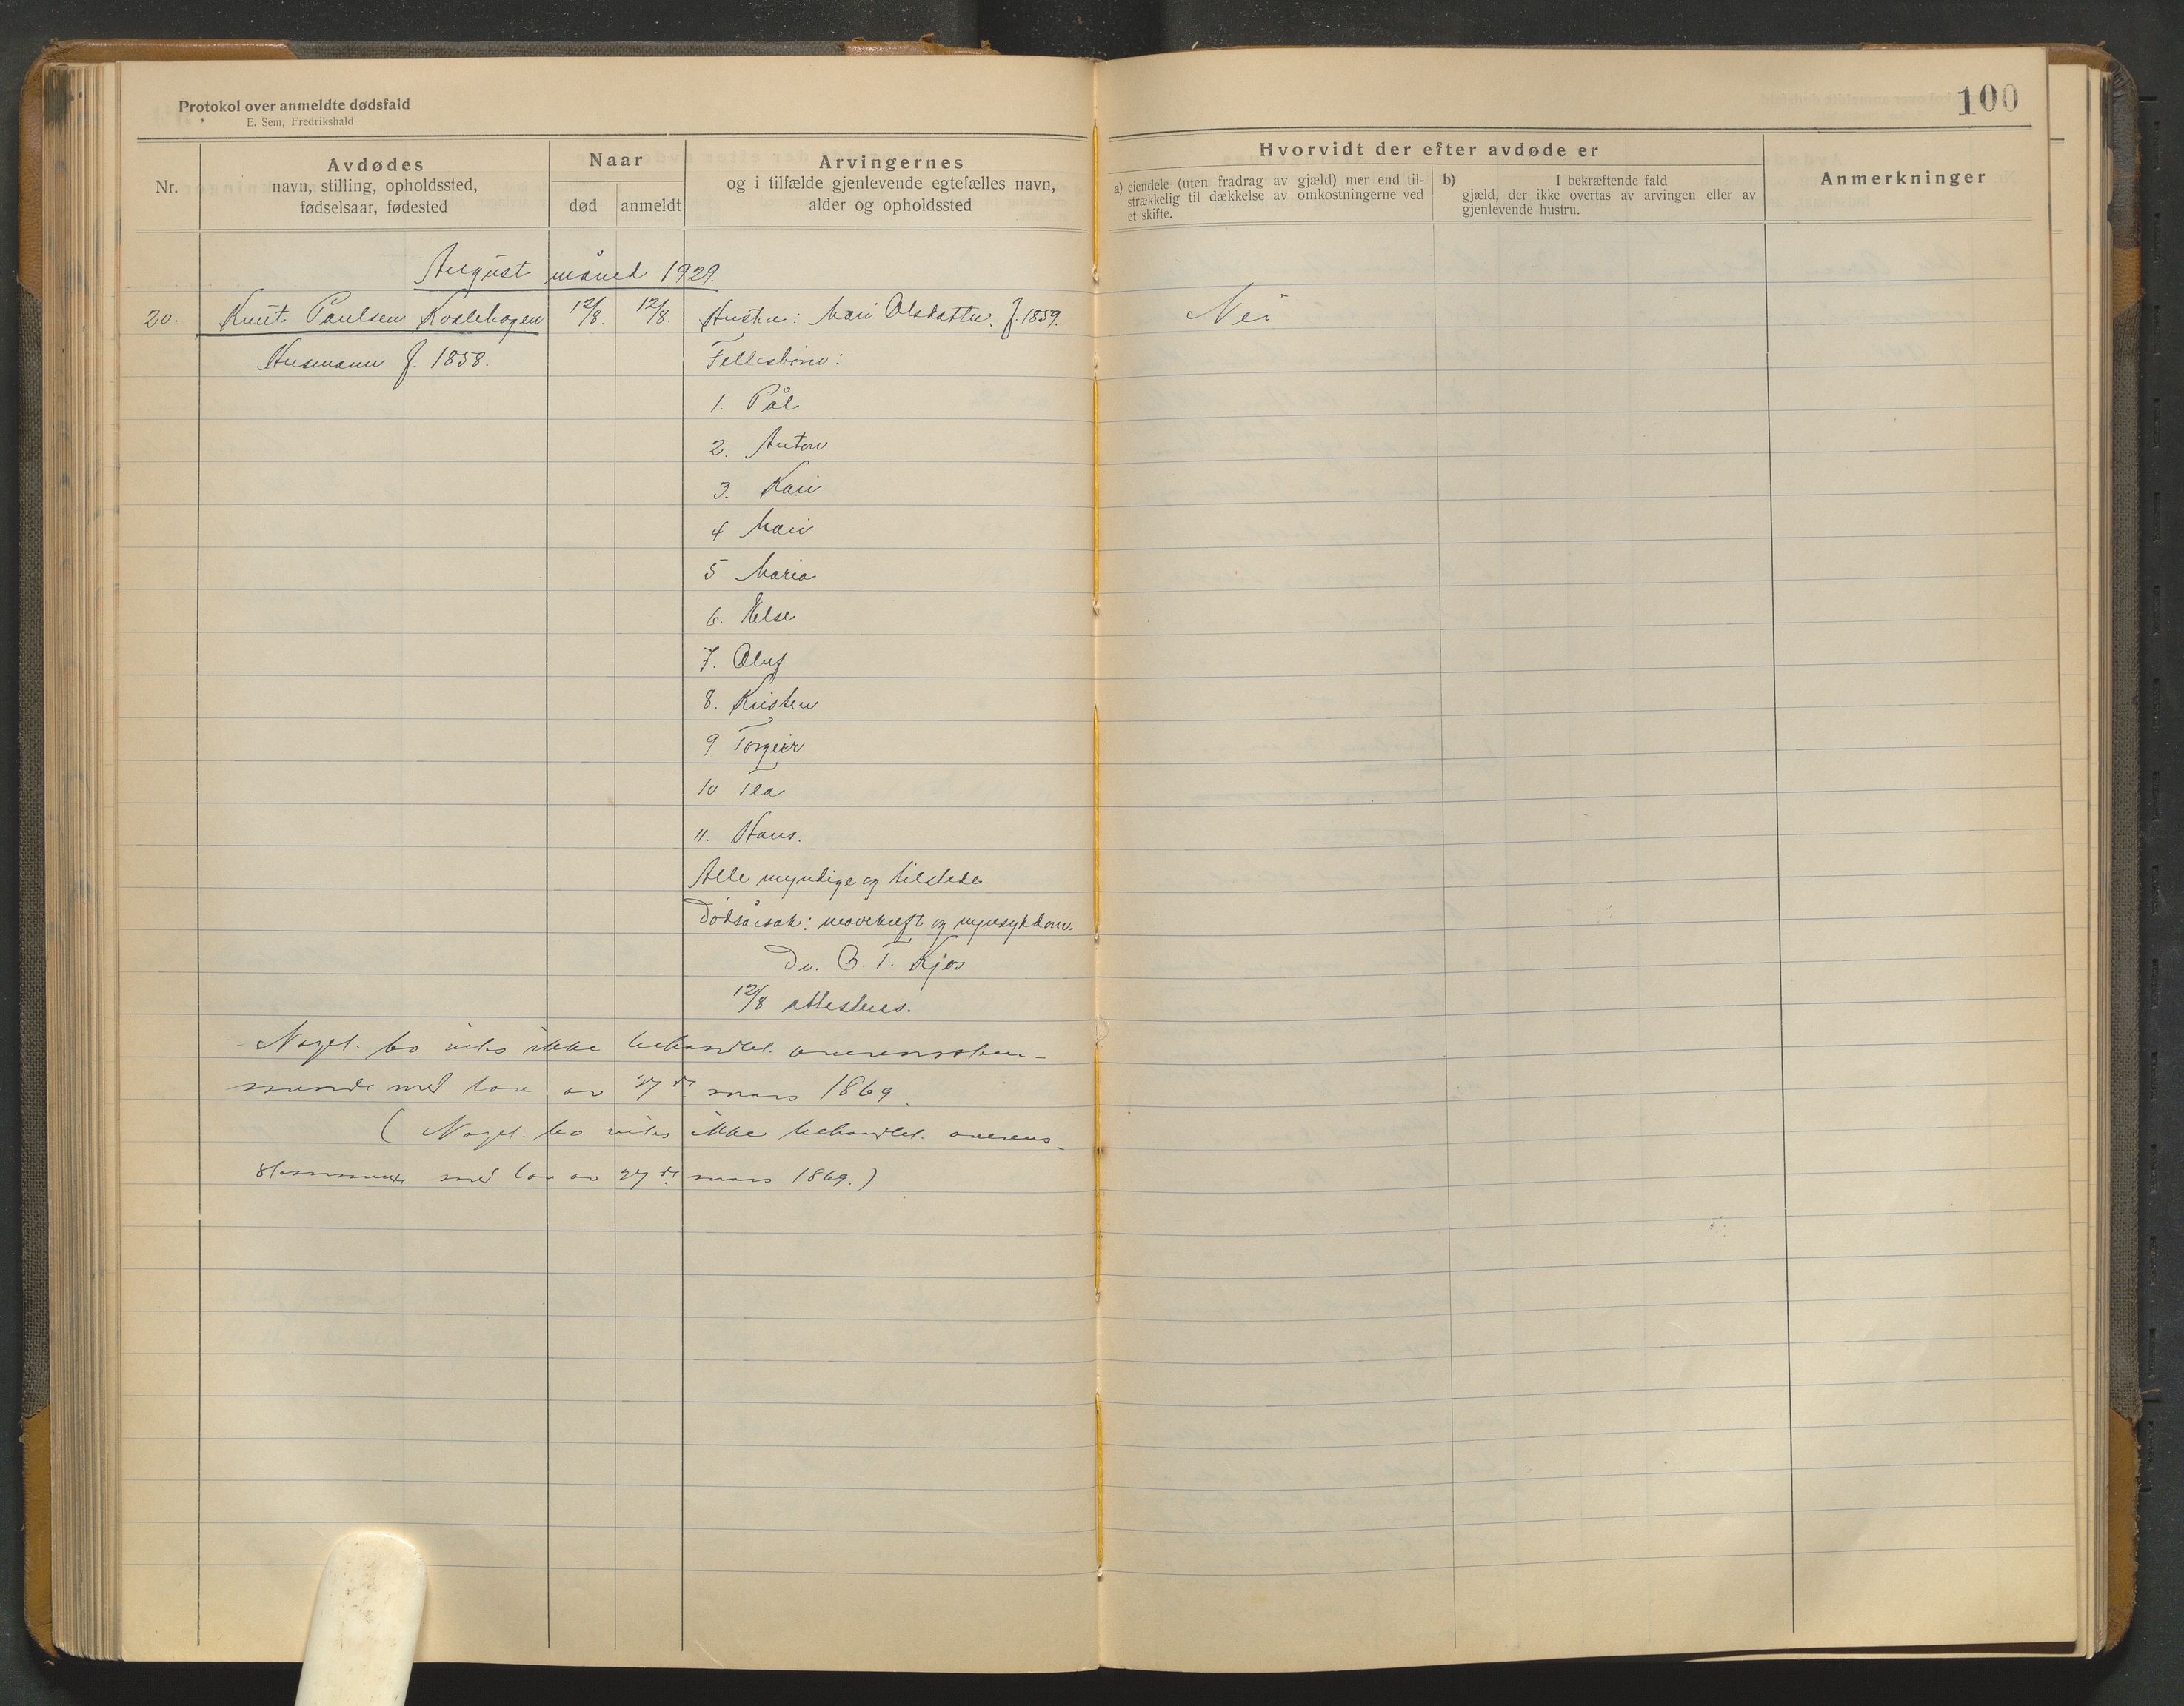 Protokol over anmeldte dødsfald
E. Sem, Fredrikshald
100
Nr.
Avdødes
navn, stilling, opholdssted,
fødselsaar, fødested
Naar
død
anmeldt
Arvingernes
og i tilfælde gjenlevende egtefælles navn,
alder og opholdssted
Hvorvidt der efter avdøde er
a) eiendele (uten fradrag av gjæld) mer end til-
strækkelig til dækkelse av omkostningerne ved
et skifte.
b) I bekræftende fald
gjæld, der ikke overtas av arvingen eller av
gjenlevende hustru.
Anmerkninger
August måned 1929.
20. Knut Paulsen Kvalehagen 12/8. 12/8. Hustru: Mari Olsdatter. f. 1859. Nei
Husmann f. 1858. Fellesbørn:
1. Pål
2. Anton
3. Kari
4 Mari
5 Maria
6. Helse
7. Oluf
8. Kristen
9 Torgeir
10 Tea
11. Hans.
Alle myndige og tilstede
Dødsårsak: mavekræft og nyresykdom.
Dr. O. T. Kjos
12/8 attesteres.
Noget bo vites ikke behandlet overensstem-
mende med lov av 27de mars 1869.
(Noget bo vites ikke behandlet overens-
stemmende med lov av 27de mars 1869.)